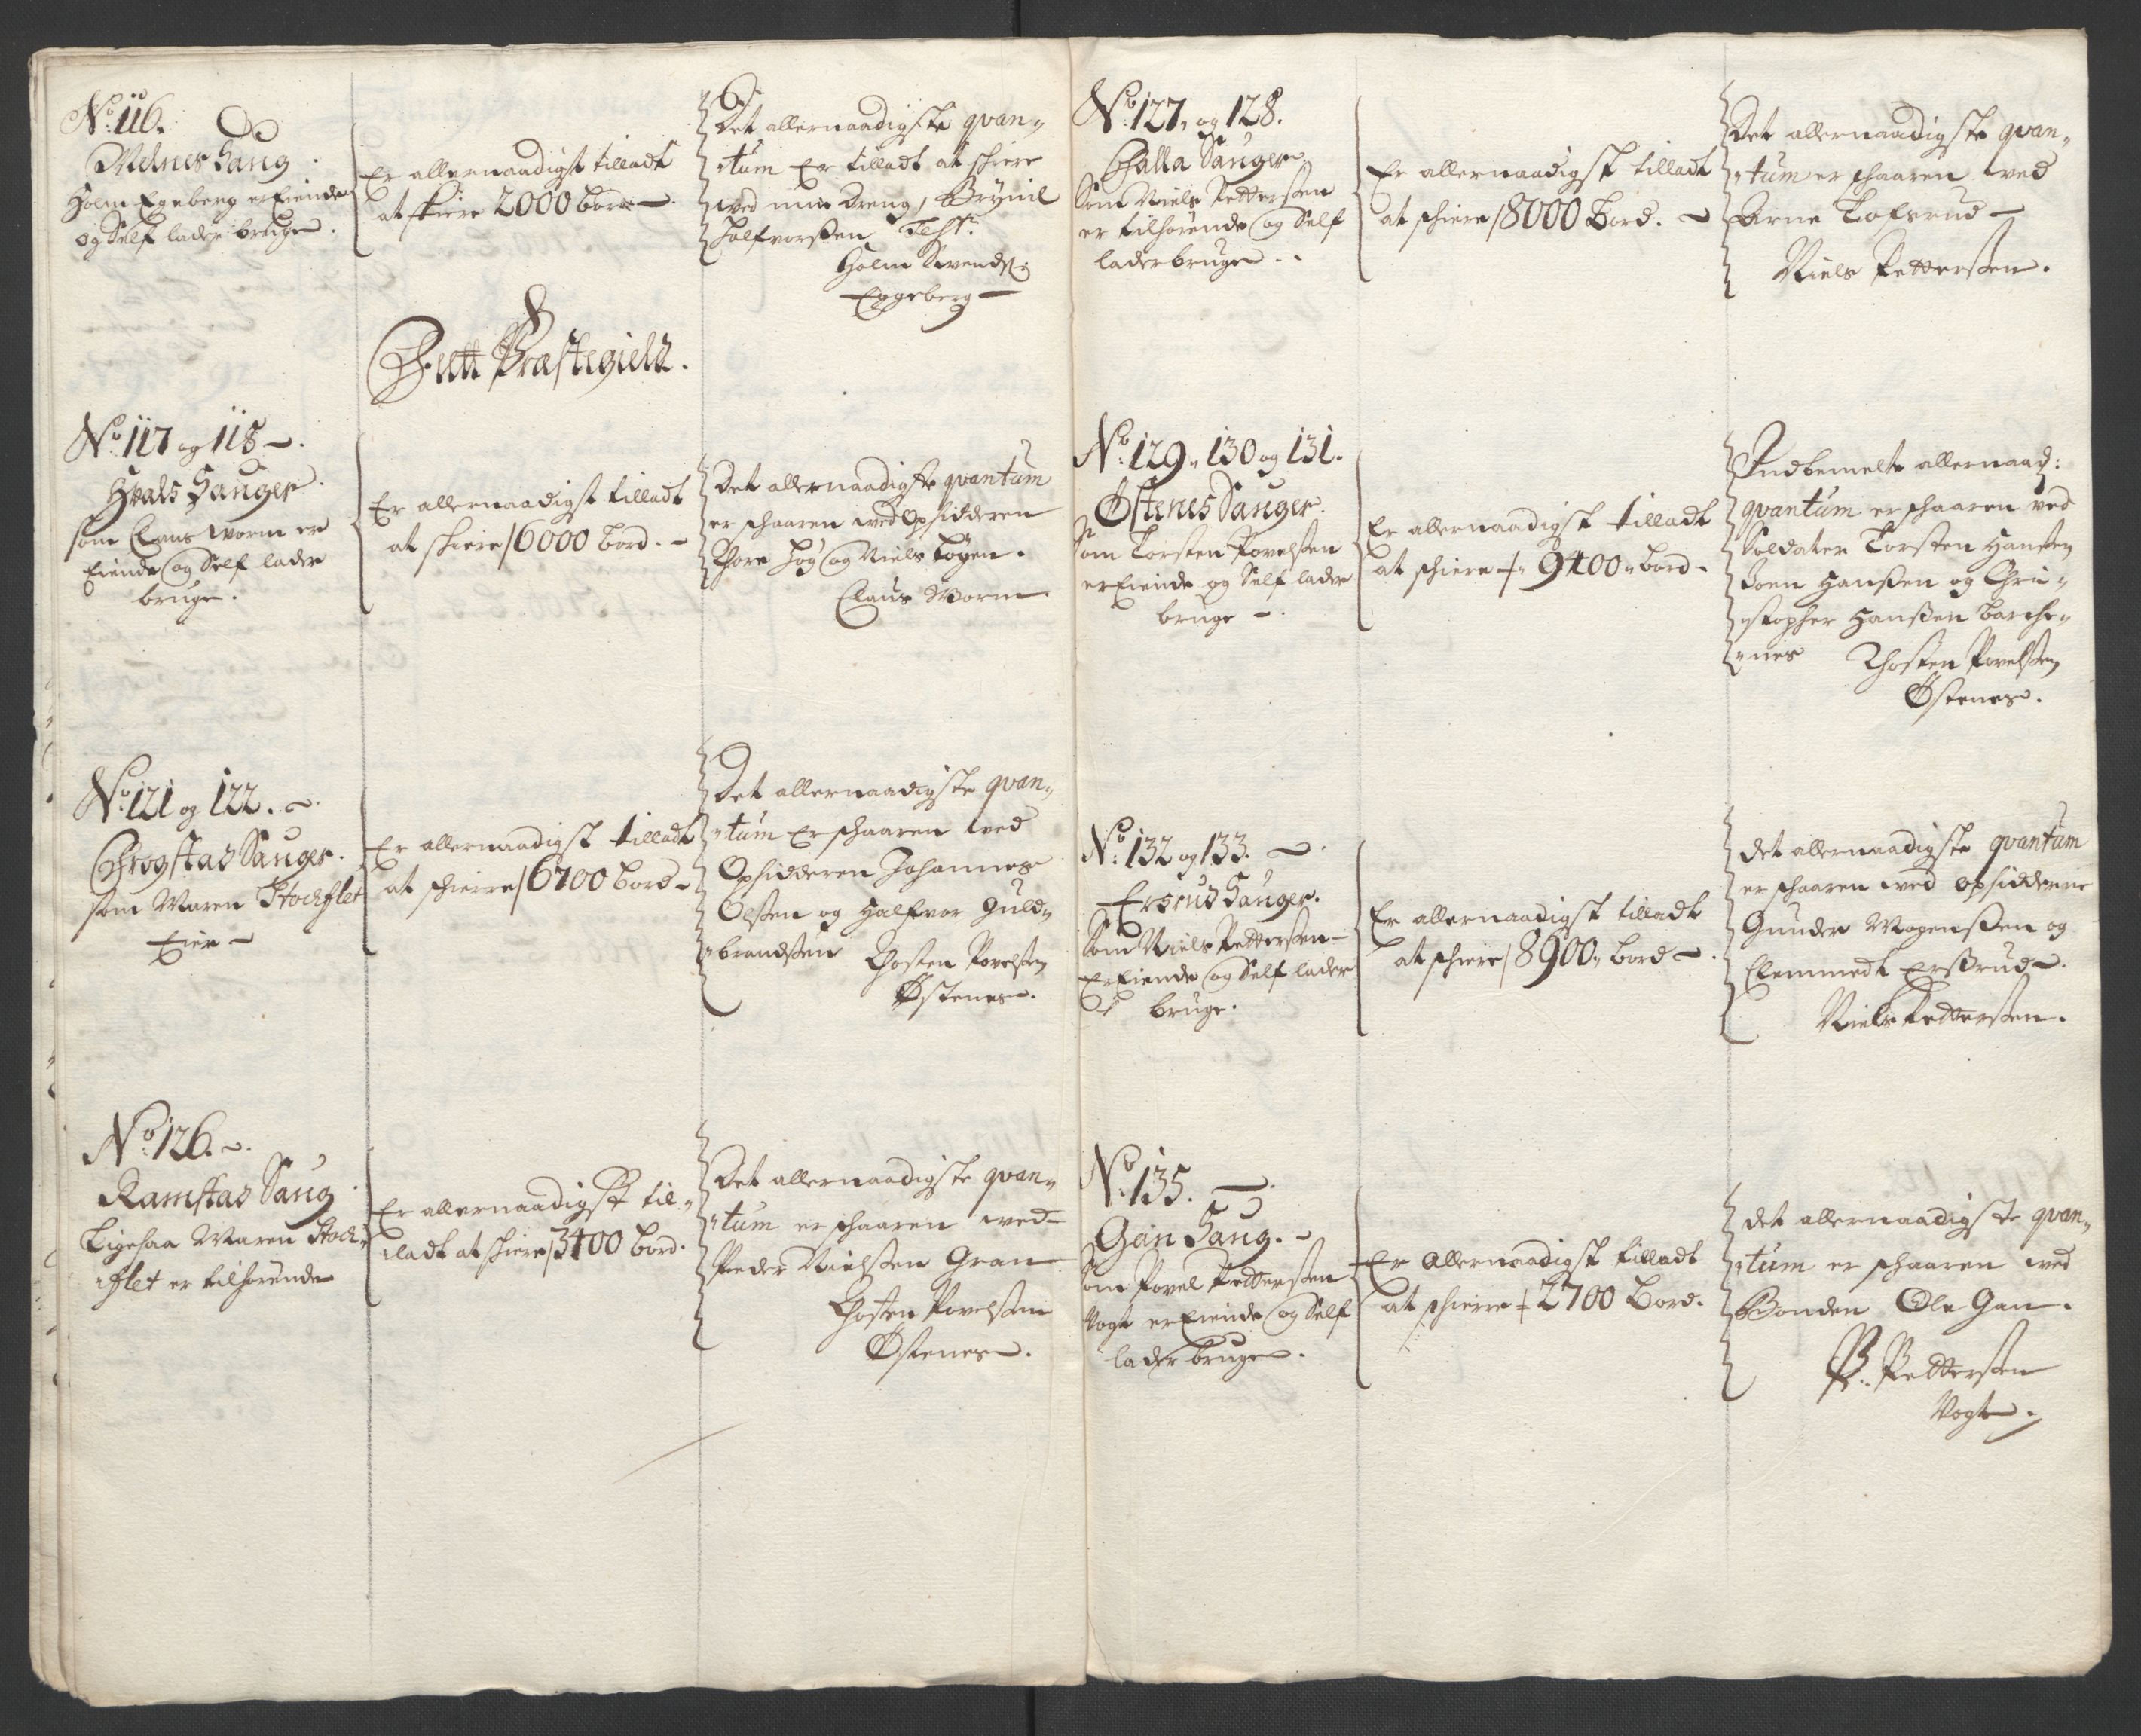 No. 116.
Melnes Saug
Holm Egeberg er Eiende
og Self lader bruge.
Er allernaadigst tilladt
at skiere 2000 bord.
Det allernaadigste qvan-
tum Er tilladt at skiere
ved min Dreng, Brynil
Halfvorßen Test:
Holm Svends:
Eggeberg
Prestegield.
No. 117 og 118.
Hvals Sauger.
som Claus Worm er
Eiende og Self lader
bruge.
Er allernaadigst tilladt
at skiere 6000 bord.
Det allernaadigste qvantum
er schaaren wed Opsidderen
Thore Høg og Niels Løgen.
Claus Worm
No. 121 og 122.
Krogstad Sauger.
som Maren Stochflet
Eier
Er allernaadigst tilladt
at schierre 6700 bord
Det allernaadigste qvan-
tum Er schaaren wed
Opsidderen Johannes
Olßen og Halfvor Guld-
brandßen Thosten Povelßen
Østenes.
No. 126.
Ramstad Saug
Ligesaa Maren Stoch-
flet er tilhørende
Er allernaadigst til-
ladt at skiere 3400 bord.
Det allernaadigste qvan-
tum er schaaren wed
Peder Nielßen Gran
Thosten Povelßen
Østenes.
No. 127, og 128.
Challa Sauger
Som Niels Petterßen
er tilhørende og Self
lader bruge.
Er allernaadigst tilladt
at schiere 8000 Bord.
Det allernaadigste qvan-
tum er schaaren wed
Arne Tofsrud
Niels Petterßen.
No. 129, 130 og 131.
Østenes Sauger.
Som Torsten Povelßen
er Eiende og Self lader
bruge.
Er allernaadigst tilladt
at schiere 9400 bord
Indbemelte allernaad:
qvantum er schaaren ved
Soldater Torsten Hanßen
Joen Hanßen og Chri-
stopher Hanßen Barche-
nes Thosten Povelßen
Østenes.
No. 132 og 133.
Ersrud Sauger.
Som Niels Petterßen
Er Eiende og Self lader
bruge.
Er allernaadigst tilladt
at schiere 8900 bord
det allernaadigste qvantum
er schaaren wed opsidderne
Gunder Mogenßen og
Clemmedt Erßrud.
Niels Petterßen.
No. 135.
Gan Saug.
som Povel Petterßen
Vogt er Eiende og Self
lader bruge.
Er allernaadigst tilladt
at schierre 2700 Bord.
det allernaadigste qvan-
tum er schaaren wed
Bonden Ole Gan.
P. Petterßen
Vogt.